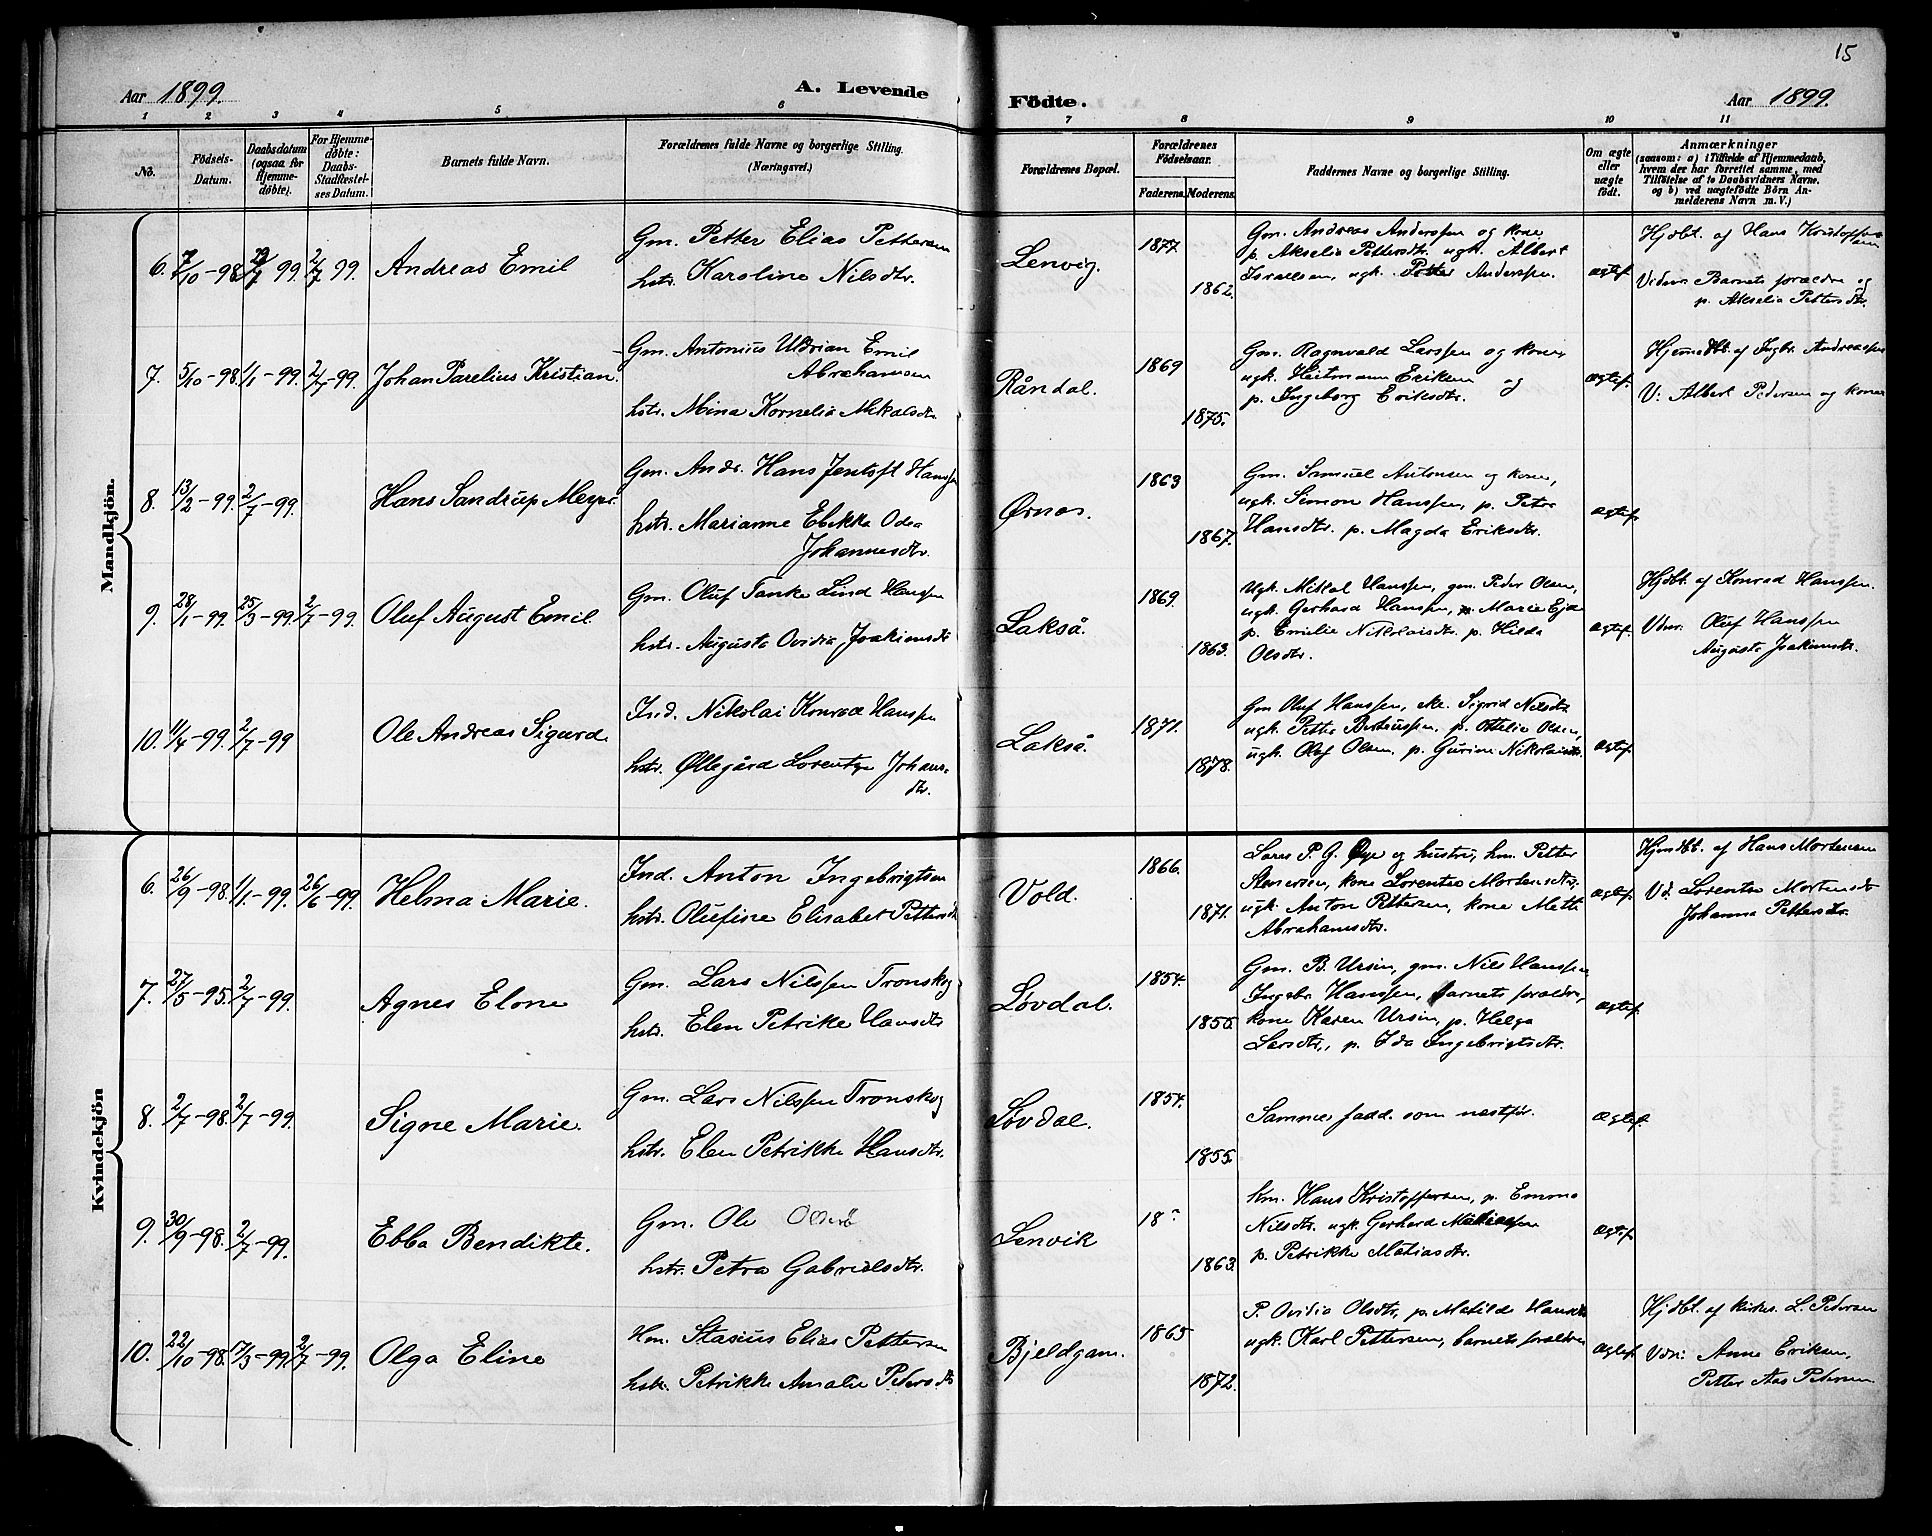 15
Aar 1899.
A. Levende
Födte.
Aar 1899.
1 2 3 4 5 6 7 8 9 10 11
No.
Födsels-
Datum.
Daabsdatum
(ogsaa for
Hjemme-
döbte).
For Hjemme-
döbte:
Daabs-
Stadfæstel-
ses Datum.
Barnets fulde Navn.
Forældrenes fulde Navne og borgerlige Stilling.
(Næringsvei.)
Forældrenes Bopæl.
Forældrenes
Födselsaar.
Faderens. Moderens.
Faddernes Navne og borgerlige Stilling.
Om ægte
eller
uægte
födt.
Anmærkninger
(saasom: a) i Tilfælde af Hjemmedaab,
hvem der har forrettet samme, med
Tilföielse af to Daabsvidners Navne.
og b) ved uægtefödte Börn An-
melderens Navn m. V.)
Mandkjön.
6. 7/10-98 2/7 99. Andreas Emil
Gm. Petter Elias Pettersen
hstr. Karoline Nilsdtr.
Lenvig.
1877
1862.
Gm. Andreas Anderssen og kone
p. Akselia Pettersdtr. ugk. Albert
Israelsen, ugk. Petter Anderssen.
ægtef.
Hjdbt. af Hans Kristoffersen
Vidner Barnets forældre og
p. Akselia Pettersdtr.
7. 5/10-98. 1/1-99. 2/7-99. Johan Parelius Kristian
Gm. Antonius Uldrian Emil
Abrahamsen
hstr. Mina Kornelia Mikalsdtr.
Råndal.
1869
1875.
Gm. Ragnvald Larssen og kone
ugk. Heitmann Eriksen og
p. Ingeborg Eriksdtr.
ægtef.
Hjemdbt. af Ingbr. Andreassen
V: Albert Pedersen og kone
8. 13/2-99. 2/7-99. Hans Sandrup Meyer.
Gm. Andr. Hans Jentoft Hanssen
hstr. Marianne Ebekka Oda
Johannesdtr.
Ørnes.
1863
1867.
Gm. Samuel Antonsen og kone,
ugk. Simon Hanssen, p. Petra
Hansdtr. p. Magda Eriksdtr.
ægtef.
9. 28/1-99. 25/3-99. 2/7-99. Oluf August Emil
Gm. Oluf Tanke Lind Hanssen
hstr. Augusta Ovidia Joakimsdtr
Lakså.
1869.
1863.
Ugk. Mikal Hanssen, gm. Peder Olsen,
ugk. Gerhard Hanssen, p. Marie
p. Emilie Nikolaisdtr. p. Hilda
Olsdtr.
ægtef.
Hjdbt. af Konrad Hanssen.
Vdnr. Oluf Hanssen
Augusta Joakimsdtr.
10. 11/4-99. 2/7-99 Ole Andreas Sigurd.
Ind. Nikolai Konrad Hanssen
hstr. Øllegård Lorentze Johans-
dtr.
Lakså
1871.
1878.
Gm Oluf Hanssen, Sigrid Nilsdtr
ugk. Petter Berteussen, p. Otelia Olsen,
ugk. Olaf Olsen, p. Gurine Nikolaisdtr.
ægtef.
Kvindekjön
6. 26/9-98. 1/1-99. 26/6-99. Helma Marie.
Ind. Anton Ingebrigtsen
hstr. Olufine Elisabet Pettersdtr
Vold.
1866.
1871.
Lars P. G. Øye og hustru, hm. Petter
Stenersen, kone Lorentse Mortensdtr,
ugk. Anton Pettersen, kone Mette
Abrahamsdtr.
ægtef.
Hjmdbt. af Hans Mortensen
Vd. Lorentse Mortensdtr
Johanna Pettersdtr.
7. 27/5-95. 2/7-99. Agnes Elone
Gm. Lars Nilssen Tronskog
hstr. Elen Petrike Hansdtr
Løvdal.
1854.
1855.
Gm. B. Ursin, gm. Nils Hanssen,
Ingebr. Hanssen, barnets forældre,
kone Karen Ursin, p. Helga
Larsdtr., p. Ida Ingebrigtsdtr.
ægtef.
8. 2/7-98. 2/7-99. Signe Marie.
Gm. Lars Nilssen Tronskog
hstr. Elen Petrikke Hansdtr.
Løvdal.
1854.
1855.
Samme fadd. som næstfør.
Ægtef.
9. 30/9-98. 2/7-99. Ebba Bendikte.
Gm. Ole
hstr. Petra Gabrielsdtr.
Lenvik
18
1863.
hm. Hans Kristoffersen, p. Emma
Nilsdtr. ugk. Gerhard Mathiassen
p. Petrikke Matiasdtr.
ægtef.
10. 22/10-98. 17/3-99. 2/7-99. Olga Eline
Hm. Stasius Elias Pettersen
hstr. Petrikke Amalie Pedersdtr
Bjeldgam.
1865
1872.
P. Ovidia Olsdtr, p. Matilde Hansdtr
ugk. Karl Pettersen, barnets forældre
ægtef.
Hjdbt. af kirkes. L. Pedersen
Vdn: Anne Eriksen,
Petter Aas Petersen